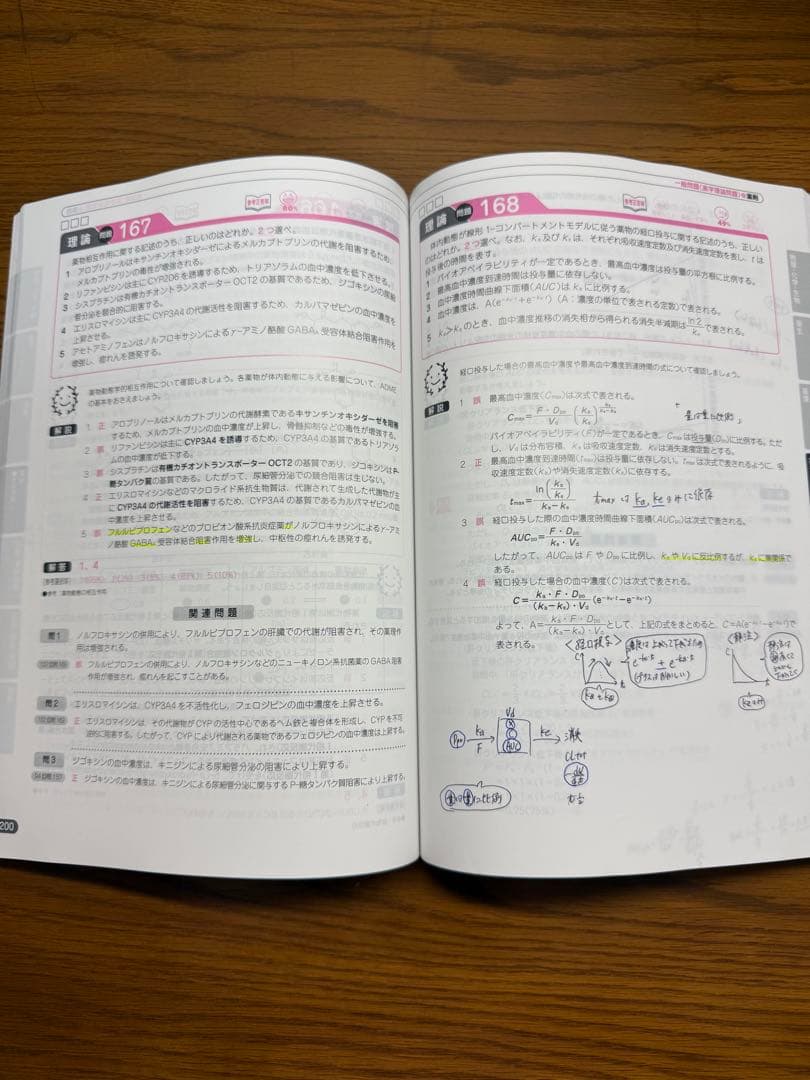 理論 問題 167
80%
薬物相互作用に関する記述のうち、正しいのはどれか。2つ選べ。
1 アロプリノールはキサンチンオキシダーゼによるメルカプトプリンの代謝を阻害するため、
メルカプトプリンの毒性が増強される。
2 リファンピシンは主にCYP2D6を誘導するため、トリアゾラムの血中濃度を低下させる。
3 シスプラチンは有機カチオントランスポーターOCT2の基質であるため、ジゴキシンの尿細
管分泌を競合的に阻害する。
4 エリスロマイシンは主にCYP3A4の代謝活性を阻害するため、カルバマゼピンの血中濃度を
上昇させる。
5 アセトアミノフェンはノルフロキサシンによるγ-アミノ酪酸GABAA受容体結合阻害作用を
増強し、痙れんを誘発する。
薬物動態学的相互作用について確認しましょう。各薬物が体内動態に与える影響について、ADME
の基本をおさえましょう。
解説
1 正 アロプリノールはメルカプトプリンの代謝酵素であるキサンチンオキシダーゼを阻害
するため、メルカプトプリンの血中濃度が上昇し、骨髄抑制などの毒性が増強する。
2 誤 リファンピシンは主にCYP3A4を誘導するため、CYP3A4の基質であるトリアゾラ
ムの血中濃度が低下する。
3 誤 シスプラチンは有機カチオントランスポーターOCT2の基質であり、ジゴキシンはP-
糖タンパク質の基質である。したがって、尿細管分泌での競合阻害は生じない。
4 正 エリスロマイシンなどのマクロライド系抗生物質は、代謝されて生成した代謝物が主
にCYP3A4の代謝活性を阻害するため、CYP3A4の基質であるカルバマゼピンの血
中濃度を上昇させる。
5 誤 フルルビプロフェンなどのプロピオン酸系抗炎症薬がノルフロキサシンによるγ-アミ
ノ酪酸GABAA受容体結合阻害作用を増強し、中枢性の痙れんを誘発する。
解答 1、4
関連問題
問1 ノルフロキサシンの併用により、フルルビプロフェンの肝臓での代謝が阻害され、その薬理作
用は増強される。
誤 フルルビプロフェンの併用により、ノルフロキサシンなどのニューキノロン系抗菌薬のGABA阻害
作用が増強され、痙れんを起こすことがある。
問2 エリスロマイシンは、CYP3A4を不活性化し、フェロジピンの血中濃度を上昇させる。
正 エリスロマイシンは、その代謝物がCYPの活性中心であるヘム鉄と複合体を形成し、CYPを不可
逆的に阻害する。したがって、CYPにより代謝される薬物であるフェロジピンの血中濃度は上昇する。
問3 ジゴキシンの血中濃度は、キニジンによる尿細管分泌の阻害により上昇する。
正 ジゴキシンの血中濃度は、キニジンによる尿細管分泌に関与するP-糖タンパク質阻害により上昇する。
200
一般問題(薬学理論問題)●薬剤
理論 問題 168
49%
体内動態が線形1-コンパートメントモデルに従う薬物の経口投与に関する記述のうち、正しい
のはどれか。2つ選べ。なお、ka及びkeは、それぞれ吸収速度定数及び消失速度定数を表し、tは
投与後の時間を表す。
1 バイオアベイラビリティが一定であるとき、最高血中濃度は投与量の平方根に比例する。
2 最高血中濃度到達時間は投与量に依存しない。
3 血中濃度時間曲線下面積(AUC)はkaに比例する。
4 血中濃度は、A(e-ke・t+e-ka・t)(A:濃度の単位で表される定数)で表される。
5 ka≫keのとき、血中濃度推移の消失相から得られる消失半減期はln2/keで表される。
経口投与した場合の最高血中濃度や最高血中濃度到達時間の式について確認しましょう。
解説
1 誤 最高血中濃度(Cmax)は次式で表される。
バイオアベイラビリティ(F)が一定であるとき、Cmaxは投与量(Dpo)に比例する。ただ
し、Vdは分布容積、kaは吸収速度定数、keは消失速度定数とする。
2 正 最高血中濃度到達時間(tmax)は投与量に依存しない。tmaxは次式で表されるように、吸
収速度定数(ka)や消失速度定数(ke)に依存する。
tmax=ln(ka/ke)/ka-ke
tmaxは ka, keのみに依存
3 誤 経口投与した際の血中濃度時間曲線下面積(AUCpo)は次式で表される。
AUCpo=F・Dpo/ke・Vd
したがって、AUCpoはFやDpoに比例し、keやVdに反比例するが、kaに無関係で
ある。
4 誤 経口投与した場合の血中濃度(C)は次式で表される。
C=ka・F・Dpo/(ka-ke)・Vd(e-ke・t-e-ka・t)
よって、A=ka・F・Dpo/(ka-ke)・Vdとして、上記の式をまとめると、C=A(e-ke・t-e-ka・t)で
表される。
〈経口投与〉
〈静注〉
Vd
Dpo
ka
F
X
C
AUC
ke
消失
CLtot